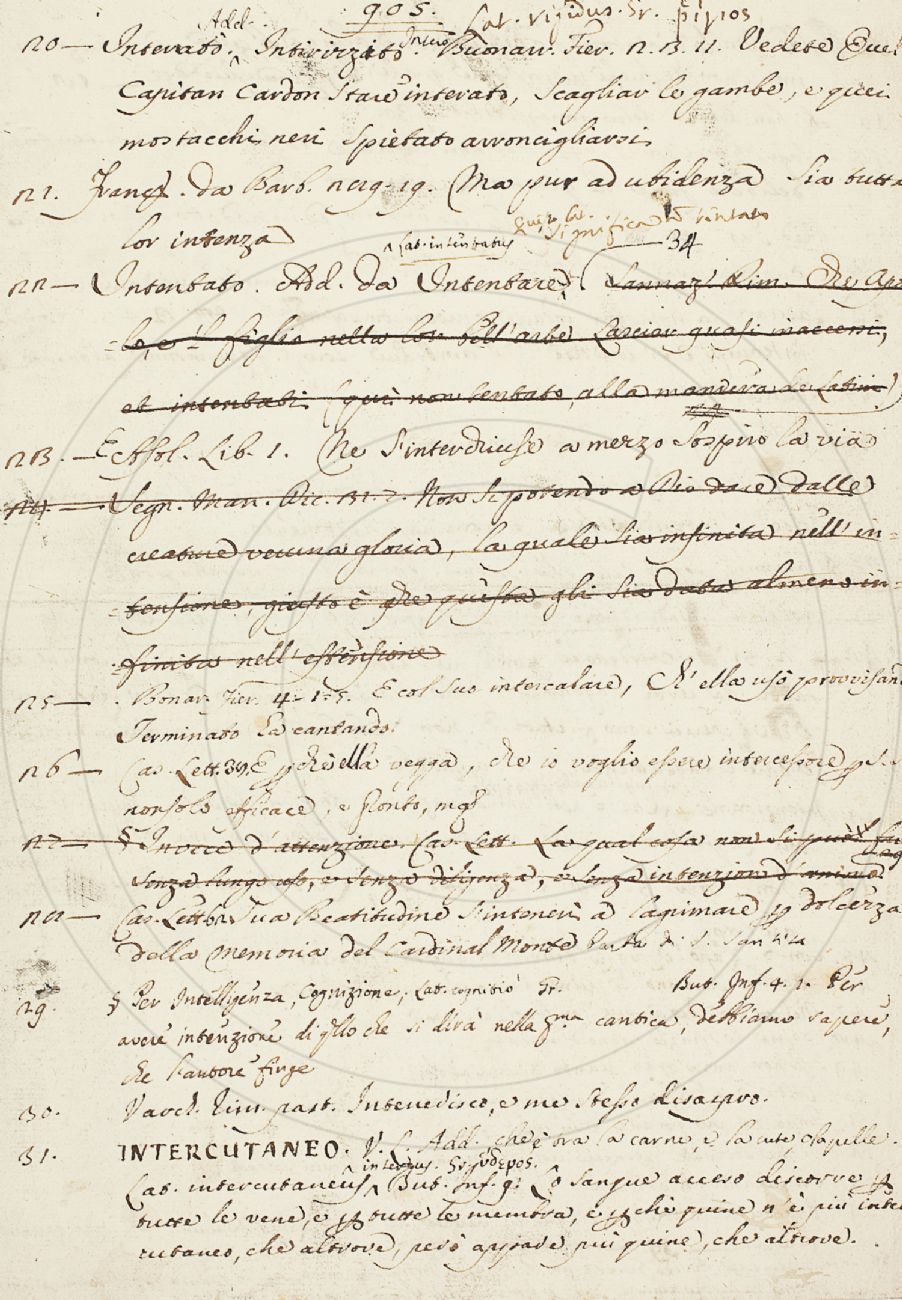 905.
Add. Lat. rigidus. Gr.
20 — Interato. Intirizzato. Intero. Buonarr. Fier. 2. 3. 11. Vedete Quel
Capitan Cardon stare interato, scagliar le gambe, e quei
mostacchi neri spietato arroncigliarsi
21. Franc. da Barb. 219. 19. Ma pur ad ubidenza sia tutta
lor intenza
Questo lat. significa tentato
Lat. intentatus 34
22 — Intentato. Add. da Intentare. (Sannaz. Rim. Che Apol
=lo, e 'l figlio nella lor bell' arte Lasciar quasi inaccessi,
et intentati (qui non tentato, alla maniera de Latini)
23. — E Asol. Lib. 1. Ne s'interchiuse a mezzo sospiro la via
24. — Segn. Man. Dic. 31. 2. Non si potendo a Dio dare dalle
creature veruna gloria, la quale sia infinita nell' in-
=tensione, giusto è che questa gli sia data almeno in-
=finita nell' estensione
25 — Bonar. Fier. 4. 1. 5. E col suo intercalare, Ch' ella usò provvisan
Terminato ha cantando.
26 — Cas. Lett. 39. E pchè ella vegga, che io voglio essere intercessore p S. S.
nonsolo efficace, e pronto, ma
27 — § Invece d' attenzione. Cas. Lett. La qual cosa non si può far
senza lungo uso, e senza diligenza, e senza intenzion d' animo
28 — Cas. Lett. Sua Beatitudine s'intenerì a lagrimare p dolcezza
della memoria del Cardinal Monte
29. § Per Intelligenza, Cognizione, Lat. cognitio Gr. But. Inf. 4. 1. Per
avere intenzione di qllo che si dirà nella pma cantica, debbiamo sapere,
che l'autore finge
30. Varch. rim. past. Intenerisco, e me stesso disacro.
31. INTERCUTANEO. V. L. Add. che è tra la carne, e la cute, o la pelle.
intercus. Gr.
Lat. intercutaneus, But. Inf. 9. Lo sangue acceso discorre p
tutte le vene, e p tutte le membra, e pchè quine n'è più inter
cutaneo, che altrove, però appare più quine, che altrove.